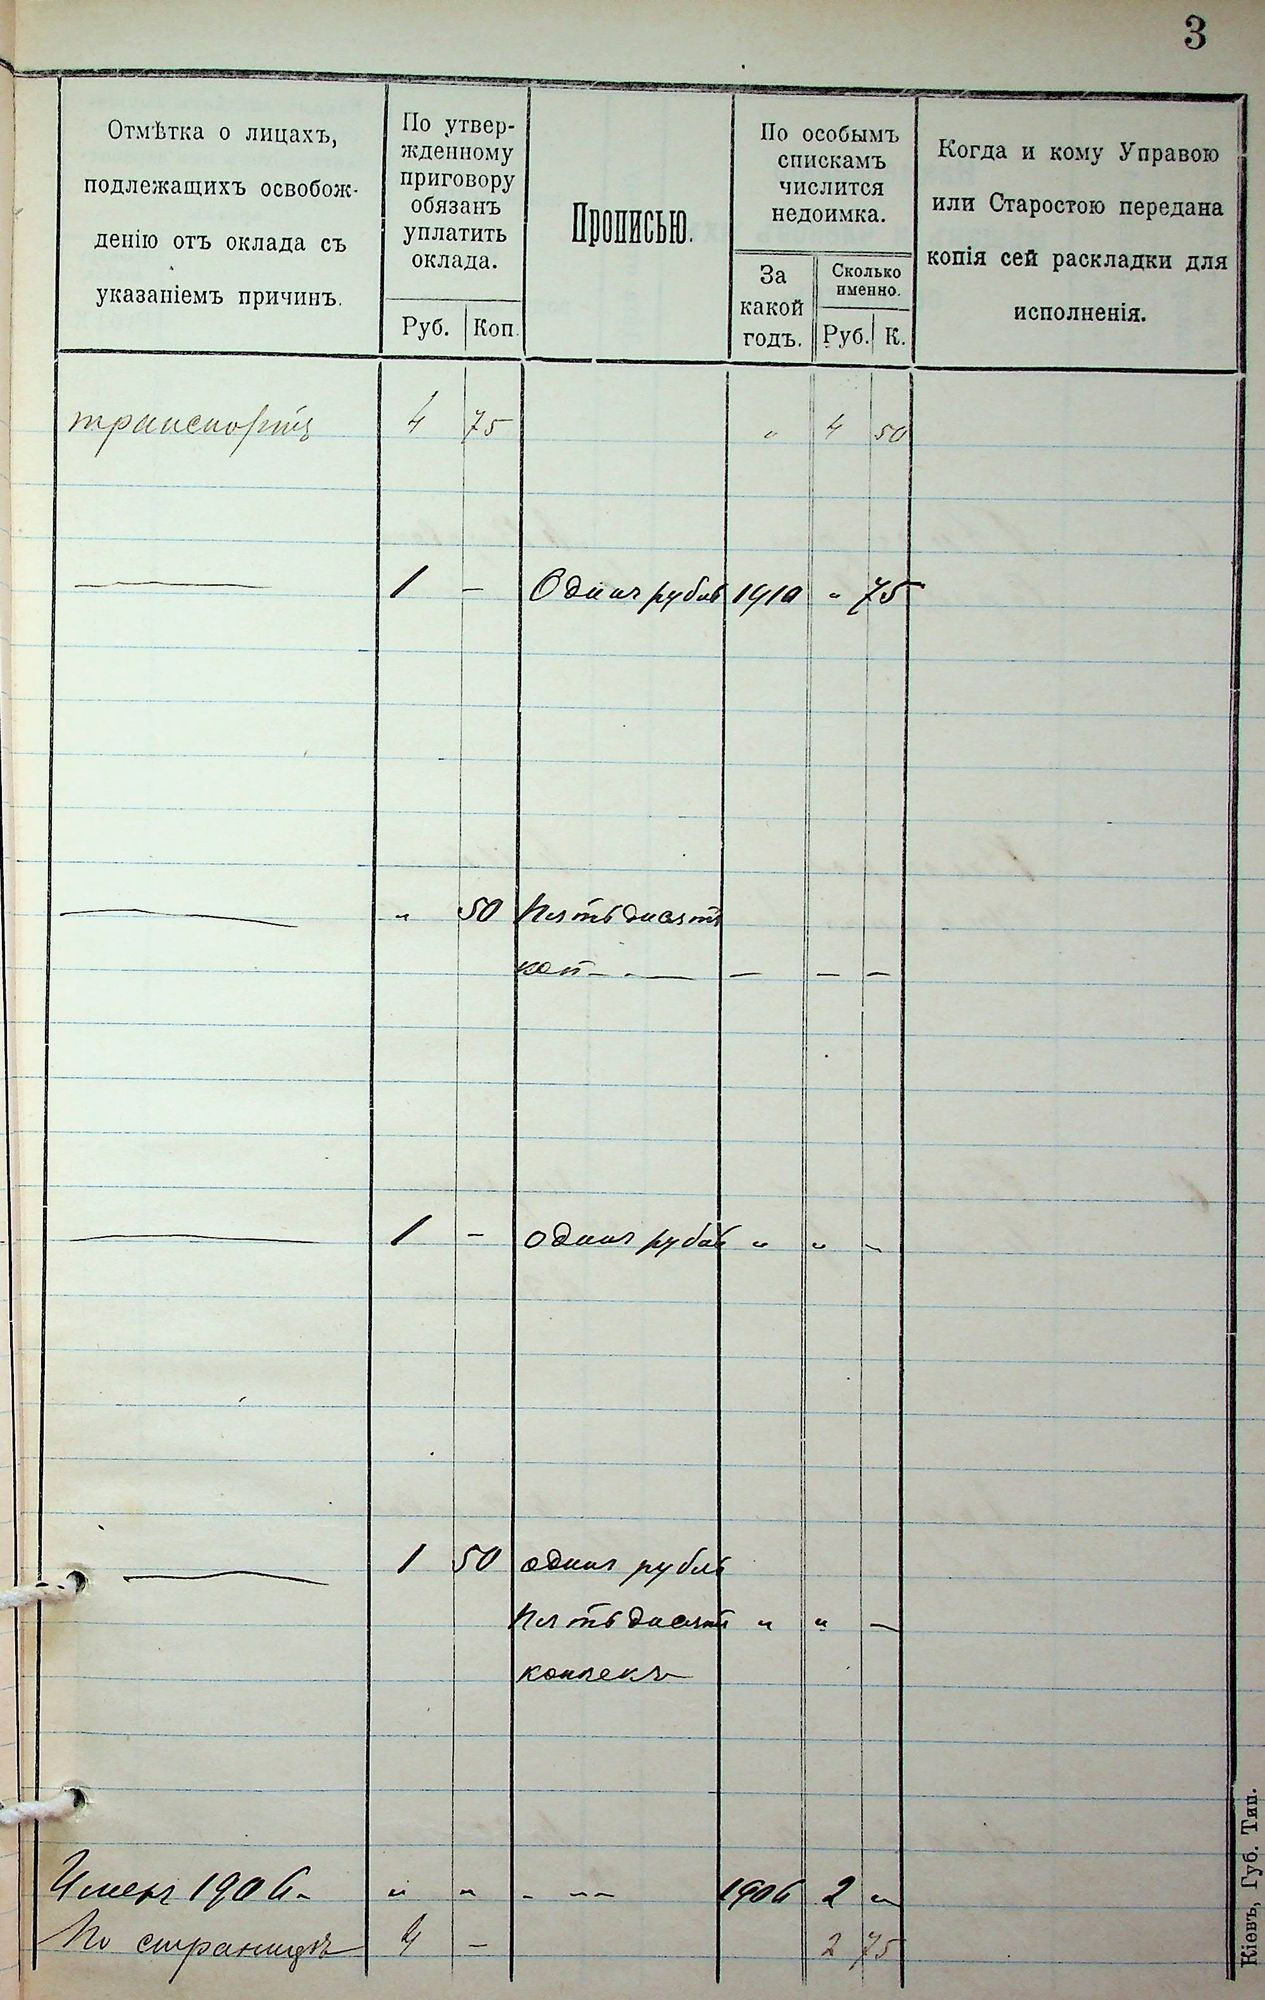 3
Отмѣтка о лицахъ,
подлежащихъ освобож-
денію отъ оклада съ
указаніемъ причинъ.
По утвер-
жденному
приговору
обязанъ
уплатить
оклада.
Руб. Коп.
Прописью.
По особымъ
спискамъ
числится
недоимка.
За
какой
годъ.
Сколько
именно.
Руб. К.
Когда и кому Управою
или Старостою передана
копія сей раскладки для
исполненія.
транспортъ 4 75 " 4 50
— 1 - Одинъ рубль 1910 " 75
— " 50 Пятьдесятъ
коп - - — — — —
— 1 - одинъ рубль " " -
— 1 50 одинъ рубль
Пятьдесятъ " " —
копѣекъ
1906 " " - -- 1906 2 "
По страницѣ 4 - 2 75
Кіевъ, Губ. Тип.